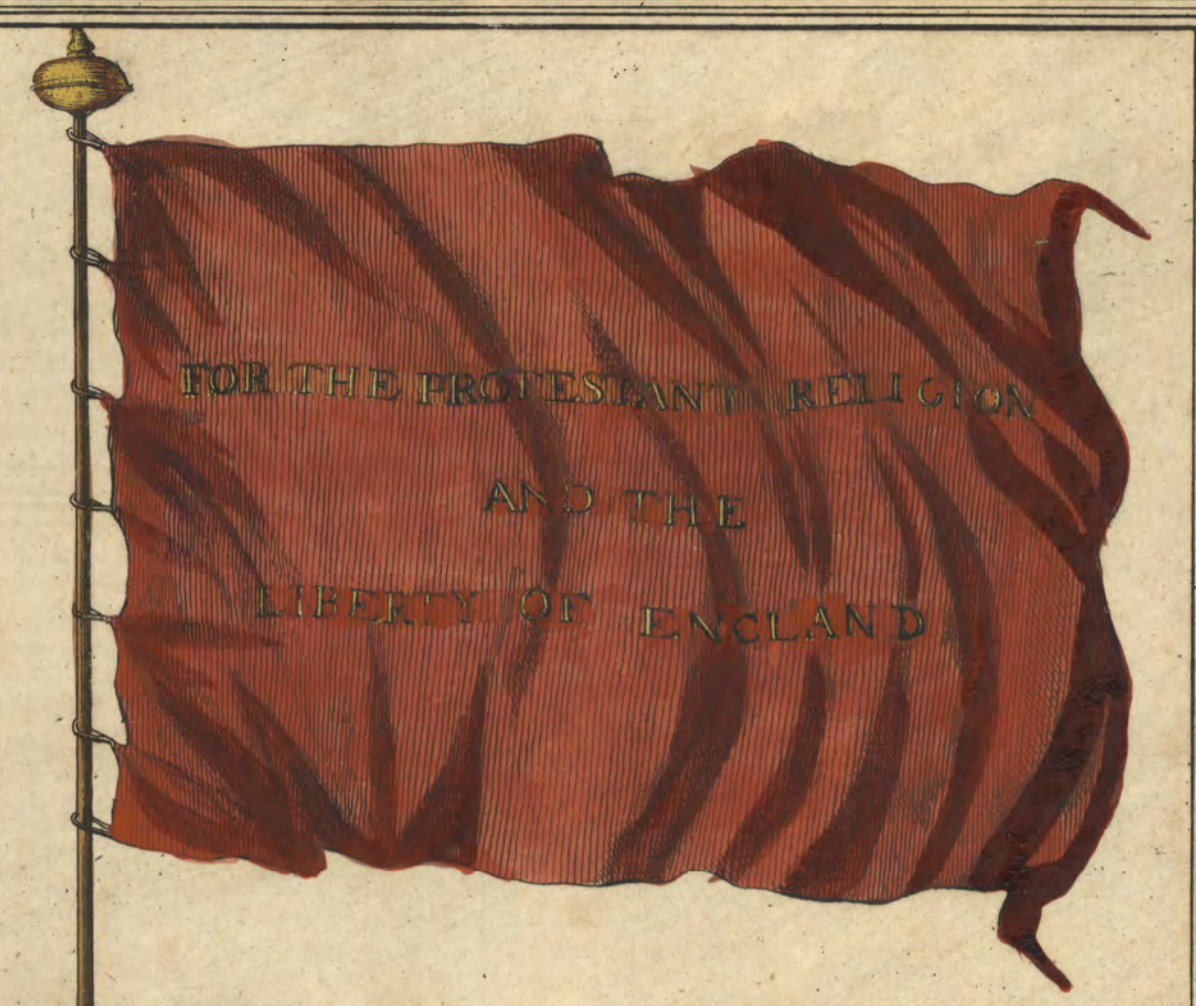 FOR THE PROTESTANT RELIGION
AND THE
LIBERTY OF ENGLAND